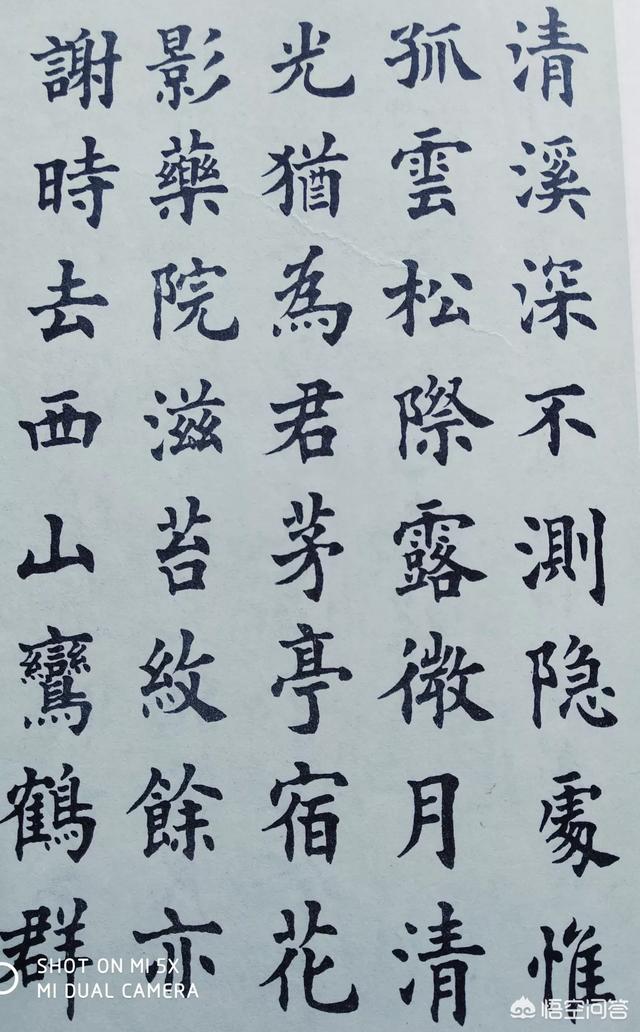 清溪深不測隐處惟
孤雲松際露微月清
光猶為君茅亭宿花
影藥院滋苔紋餘亦
謝時去西山鸞鶴群
SHOT ON MI 5X
MI DUAL CAMERA
悟空问答